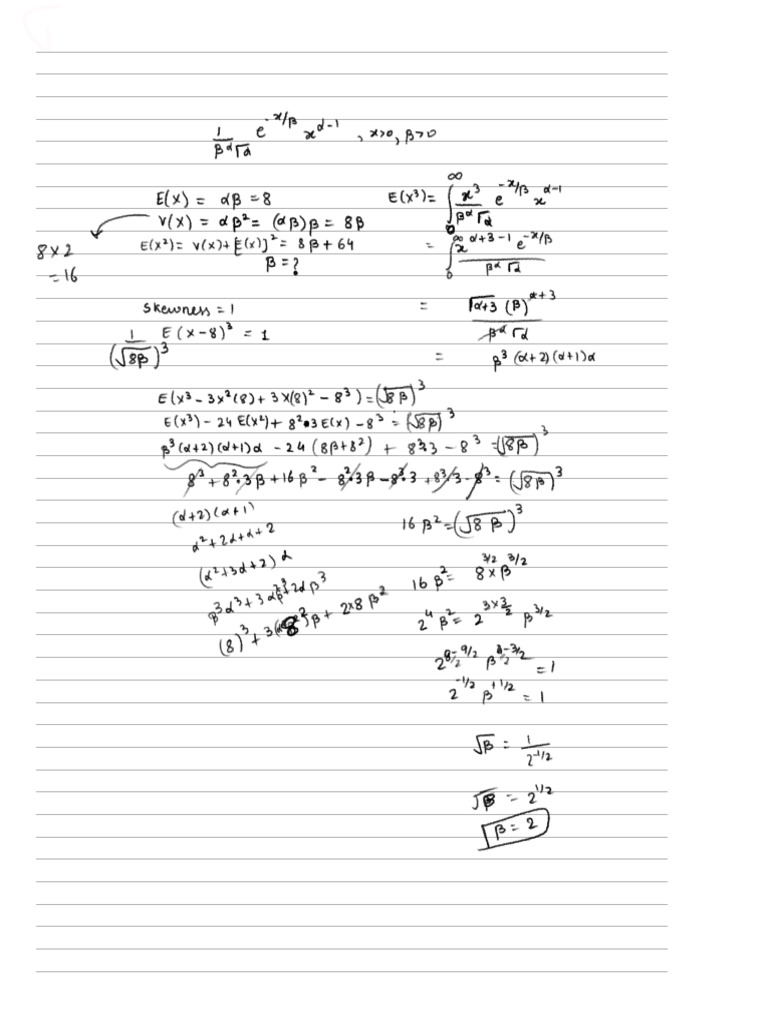 1/(β^α Γα) e^(-x/β) x^(α-1) , x>0, β>0
E(X) = αβ = 8
V(X) = αβ² = (αβ)β = 8β
8 x 2
= 16
E(X²) = V(X) + [E(X)]² = 8β + 64
β = ?
E(X³) = ∫₀^∞ x³/(β^α Γα) e^(-x/β) x^(α-1)
= ∫₀^∞ x^(α+3-1) e^(-x/β) / (β^α Γα)
= Γα+3 (β)^(α+3) / (β^α Γα)
= β³ (α+2)(α+1)α
Skewness = 1
1/(√8β)³ E(X-8)³ = 1
E(X³ - 3X²(8) + 3X(8)² - 8³) = (√8β)³
E(X³) - 24 E(X²) + 8²•3E(X) - 8³ = (√8β)³
β³(α+2)(α+1)α - 24(8β+8²) + 8³·3 - 8³ = (√8β)³
8³ + 8²•3β + 16β² - 8²·3β - 8³·3 + 8³·3 - 8³ = (√8β)³
(α+2)(α+1)
α² + 2α + α + 2
(α² + 3α + 2) α
β³α³ + 3α²β³ + 2αβ³
(8)³ + 3(8²)β + 2x8β²
16β² = (√8β)³
16β² = 8^(3/2) x β^(3/2)
2⁴β² = 2^(3x3/2) β^(3/2)
2^(8/2-9/2) β^(4/2-3/2) = 1
2^(-1/2) β^(+1/2) = 1
√β = 1/2^(-1/2)
√β = 2^(1/2)
β = 2